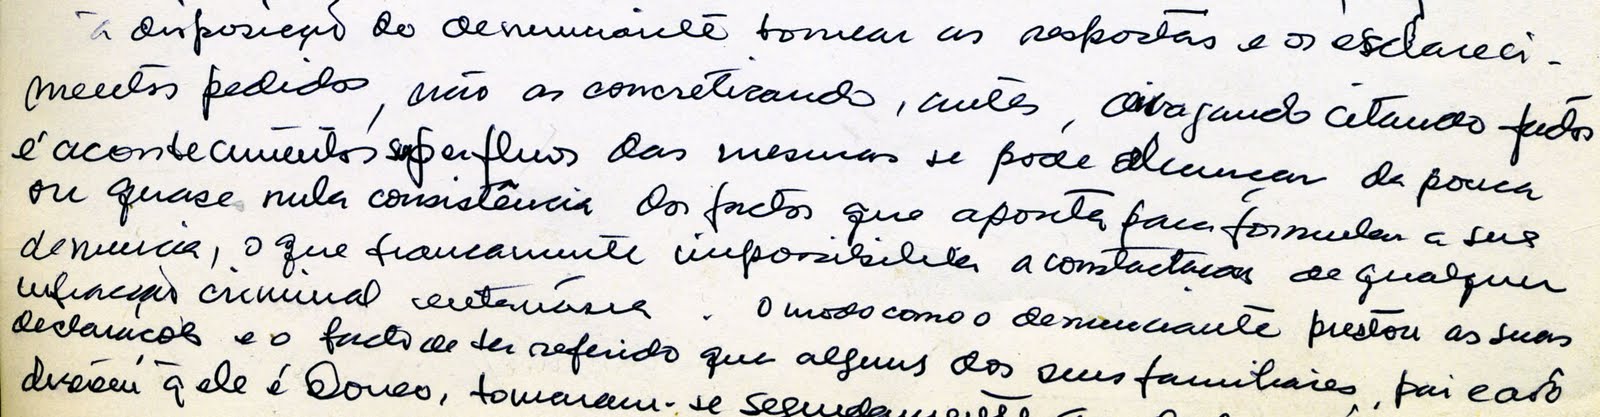 à disposição do denunciante tomar as respostas e os esclareci-
mentos pedidos, não as concretizando, antes, divagando citando factos
e acontecimentos superfluos das mesmas se pode alcançar da pouca
ou quase nula consistência dos factos que aponta para formular a sua
denuncia, o que francamente impossibilita a constactação de qualquer
infracção criminal . O modo como o denunciante prestou as suas
declarações e o facto de ter referido que alguns dos seus familiares, pai e avô
dizem q̃ ele é Louco, tomaram-se